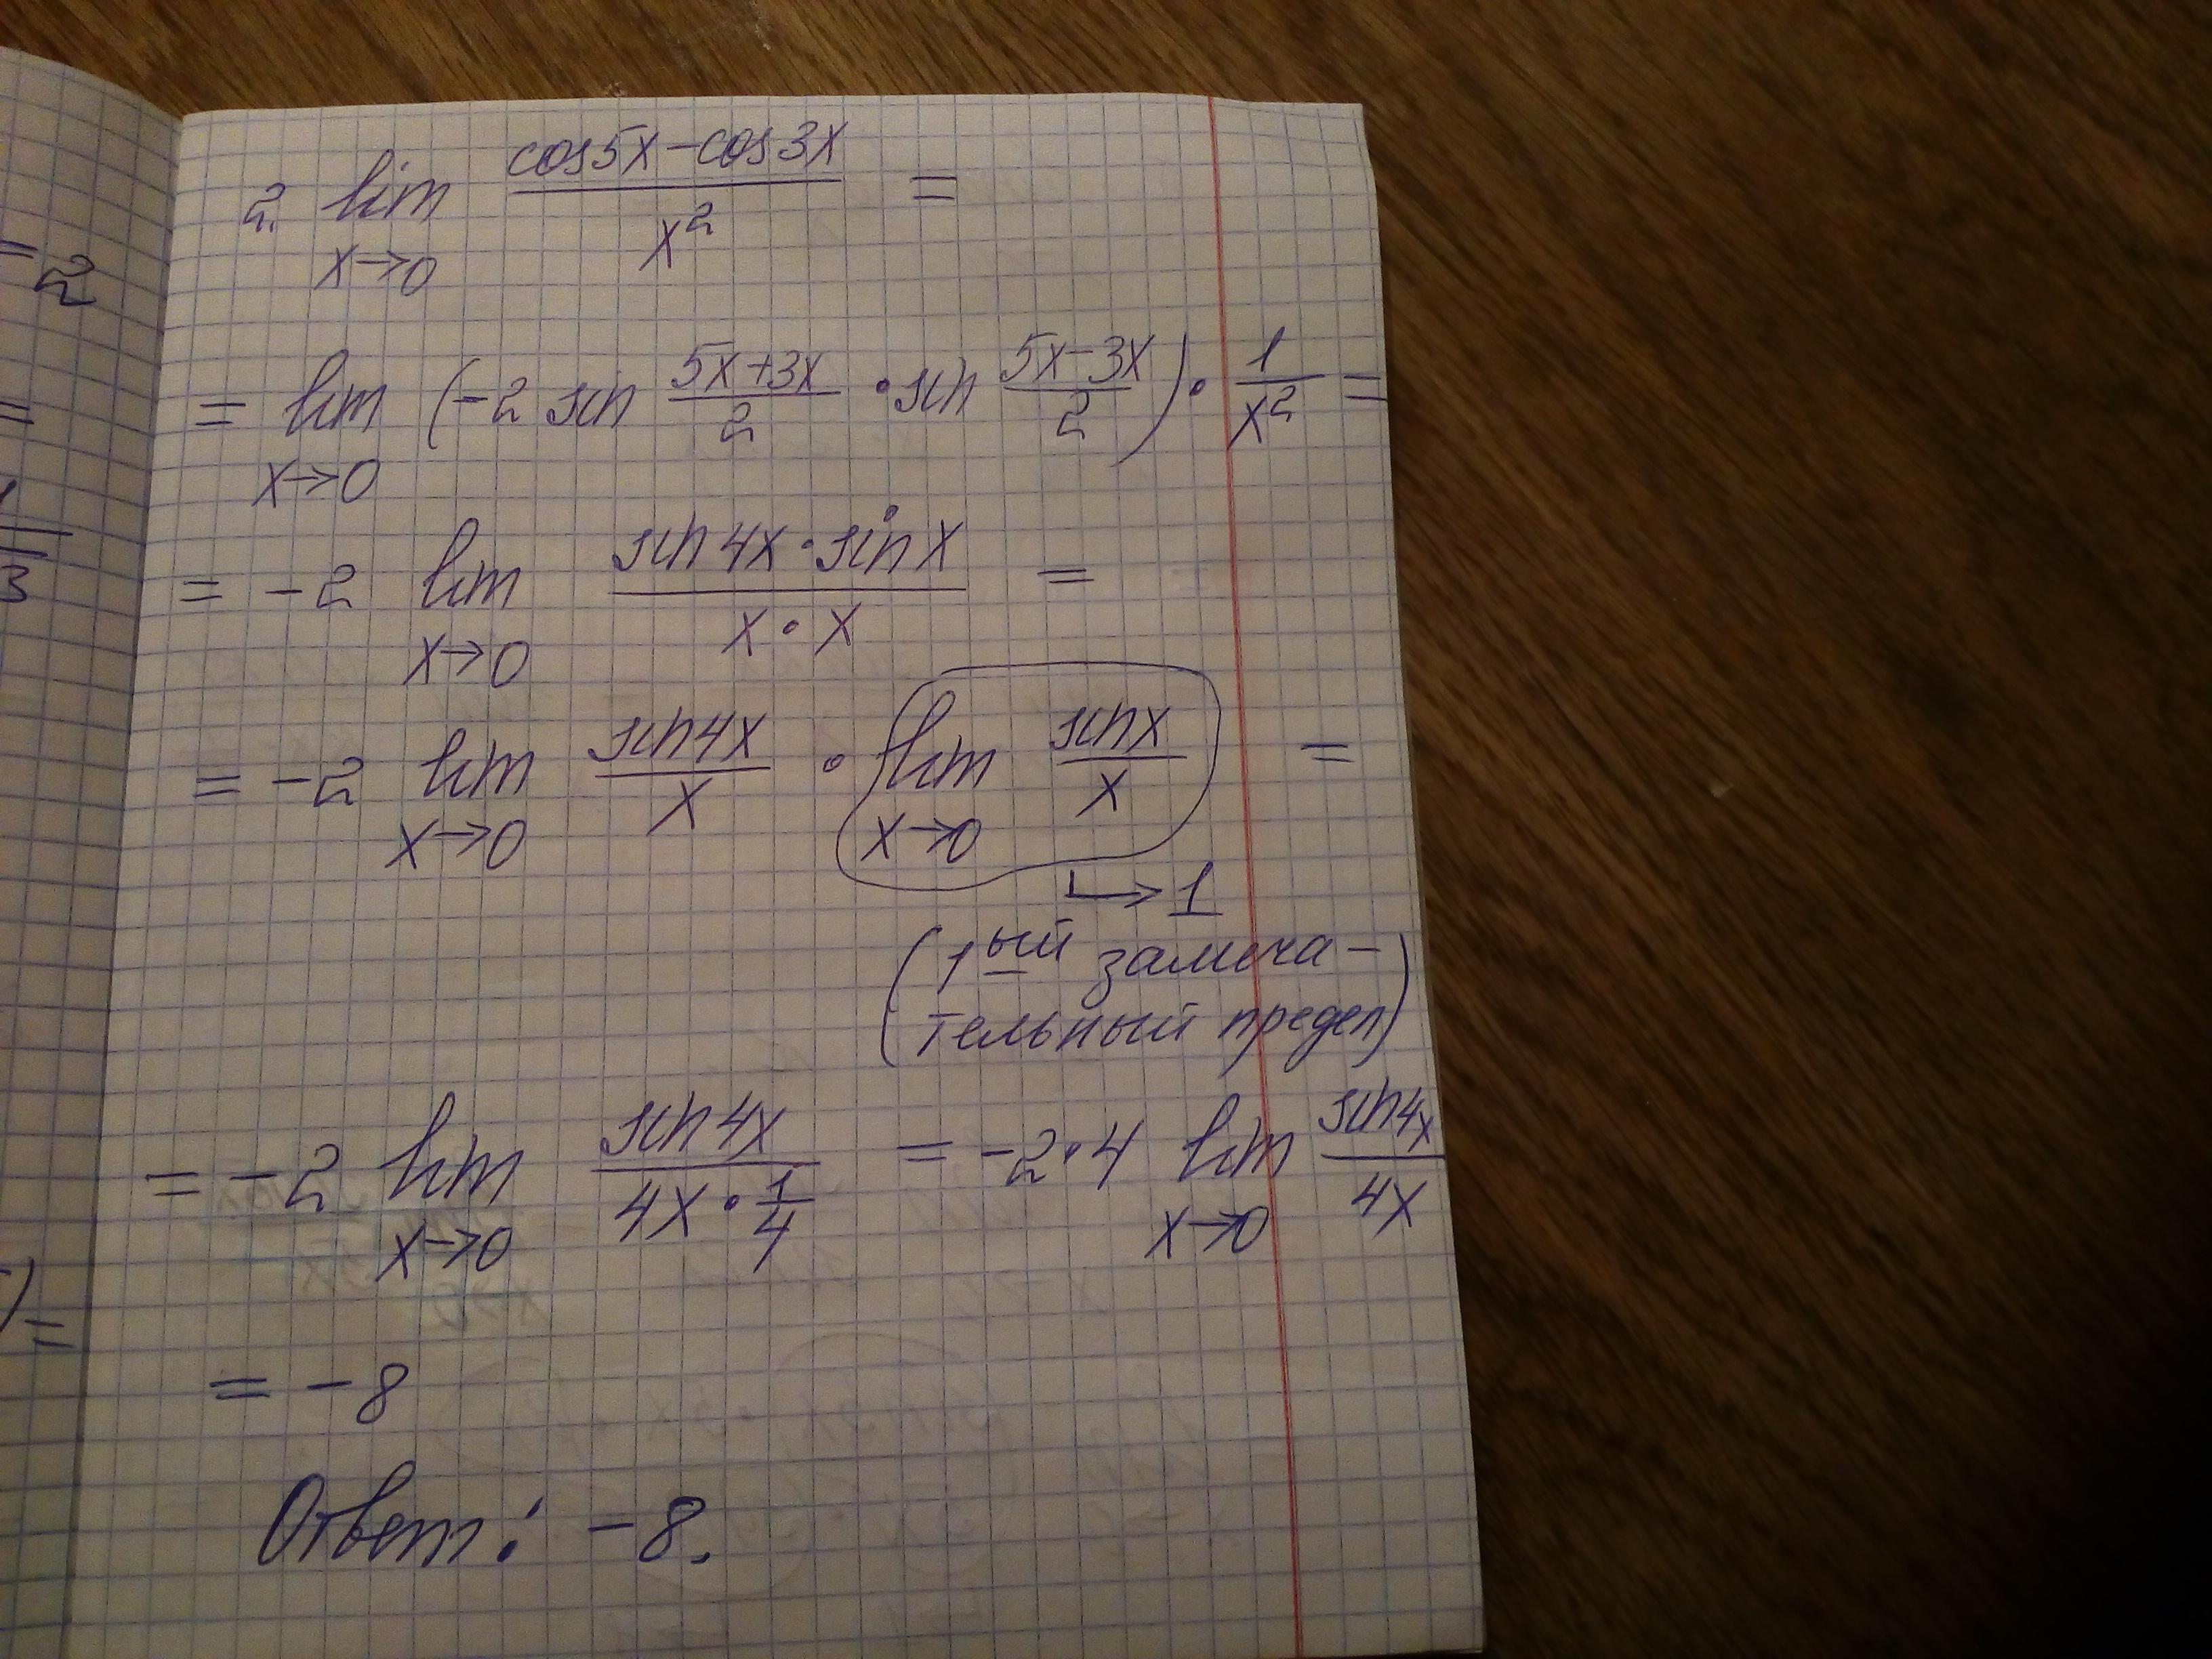 2. lim cos5x - cos3x / x² =
x→0
= lim (-2 sin 5x+3x / 2 · sin 5x-3x / 2) · 1 / x² =
x→0
= -2 lim sin4x · sinx / x · x =
x→0
= -2 lim sin4x / x · lim sinx / x =
x→0 x→0
↳ 1
(1ый замеча-
тельный предел)
= -2 lim sin4x / 4x · 1/4 = -2·4 lim sin4x / 4x
x→0 x→0
= -8
Ответ: -8.
= 2
=
1
3
) =